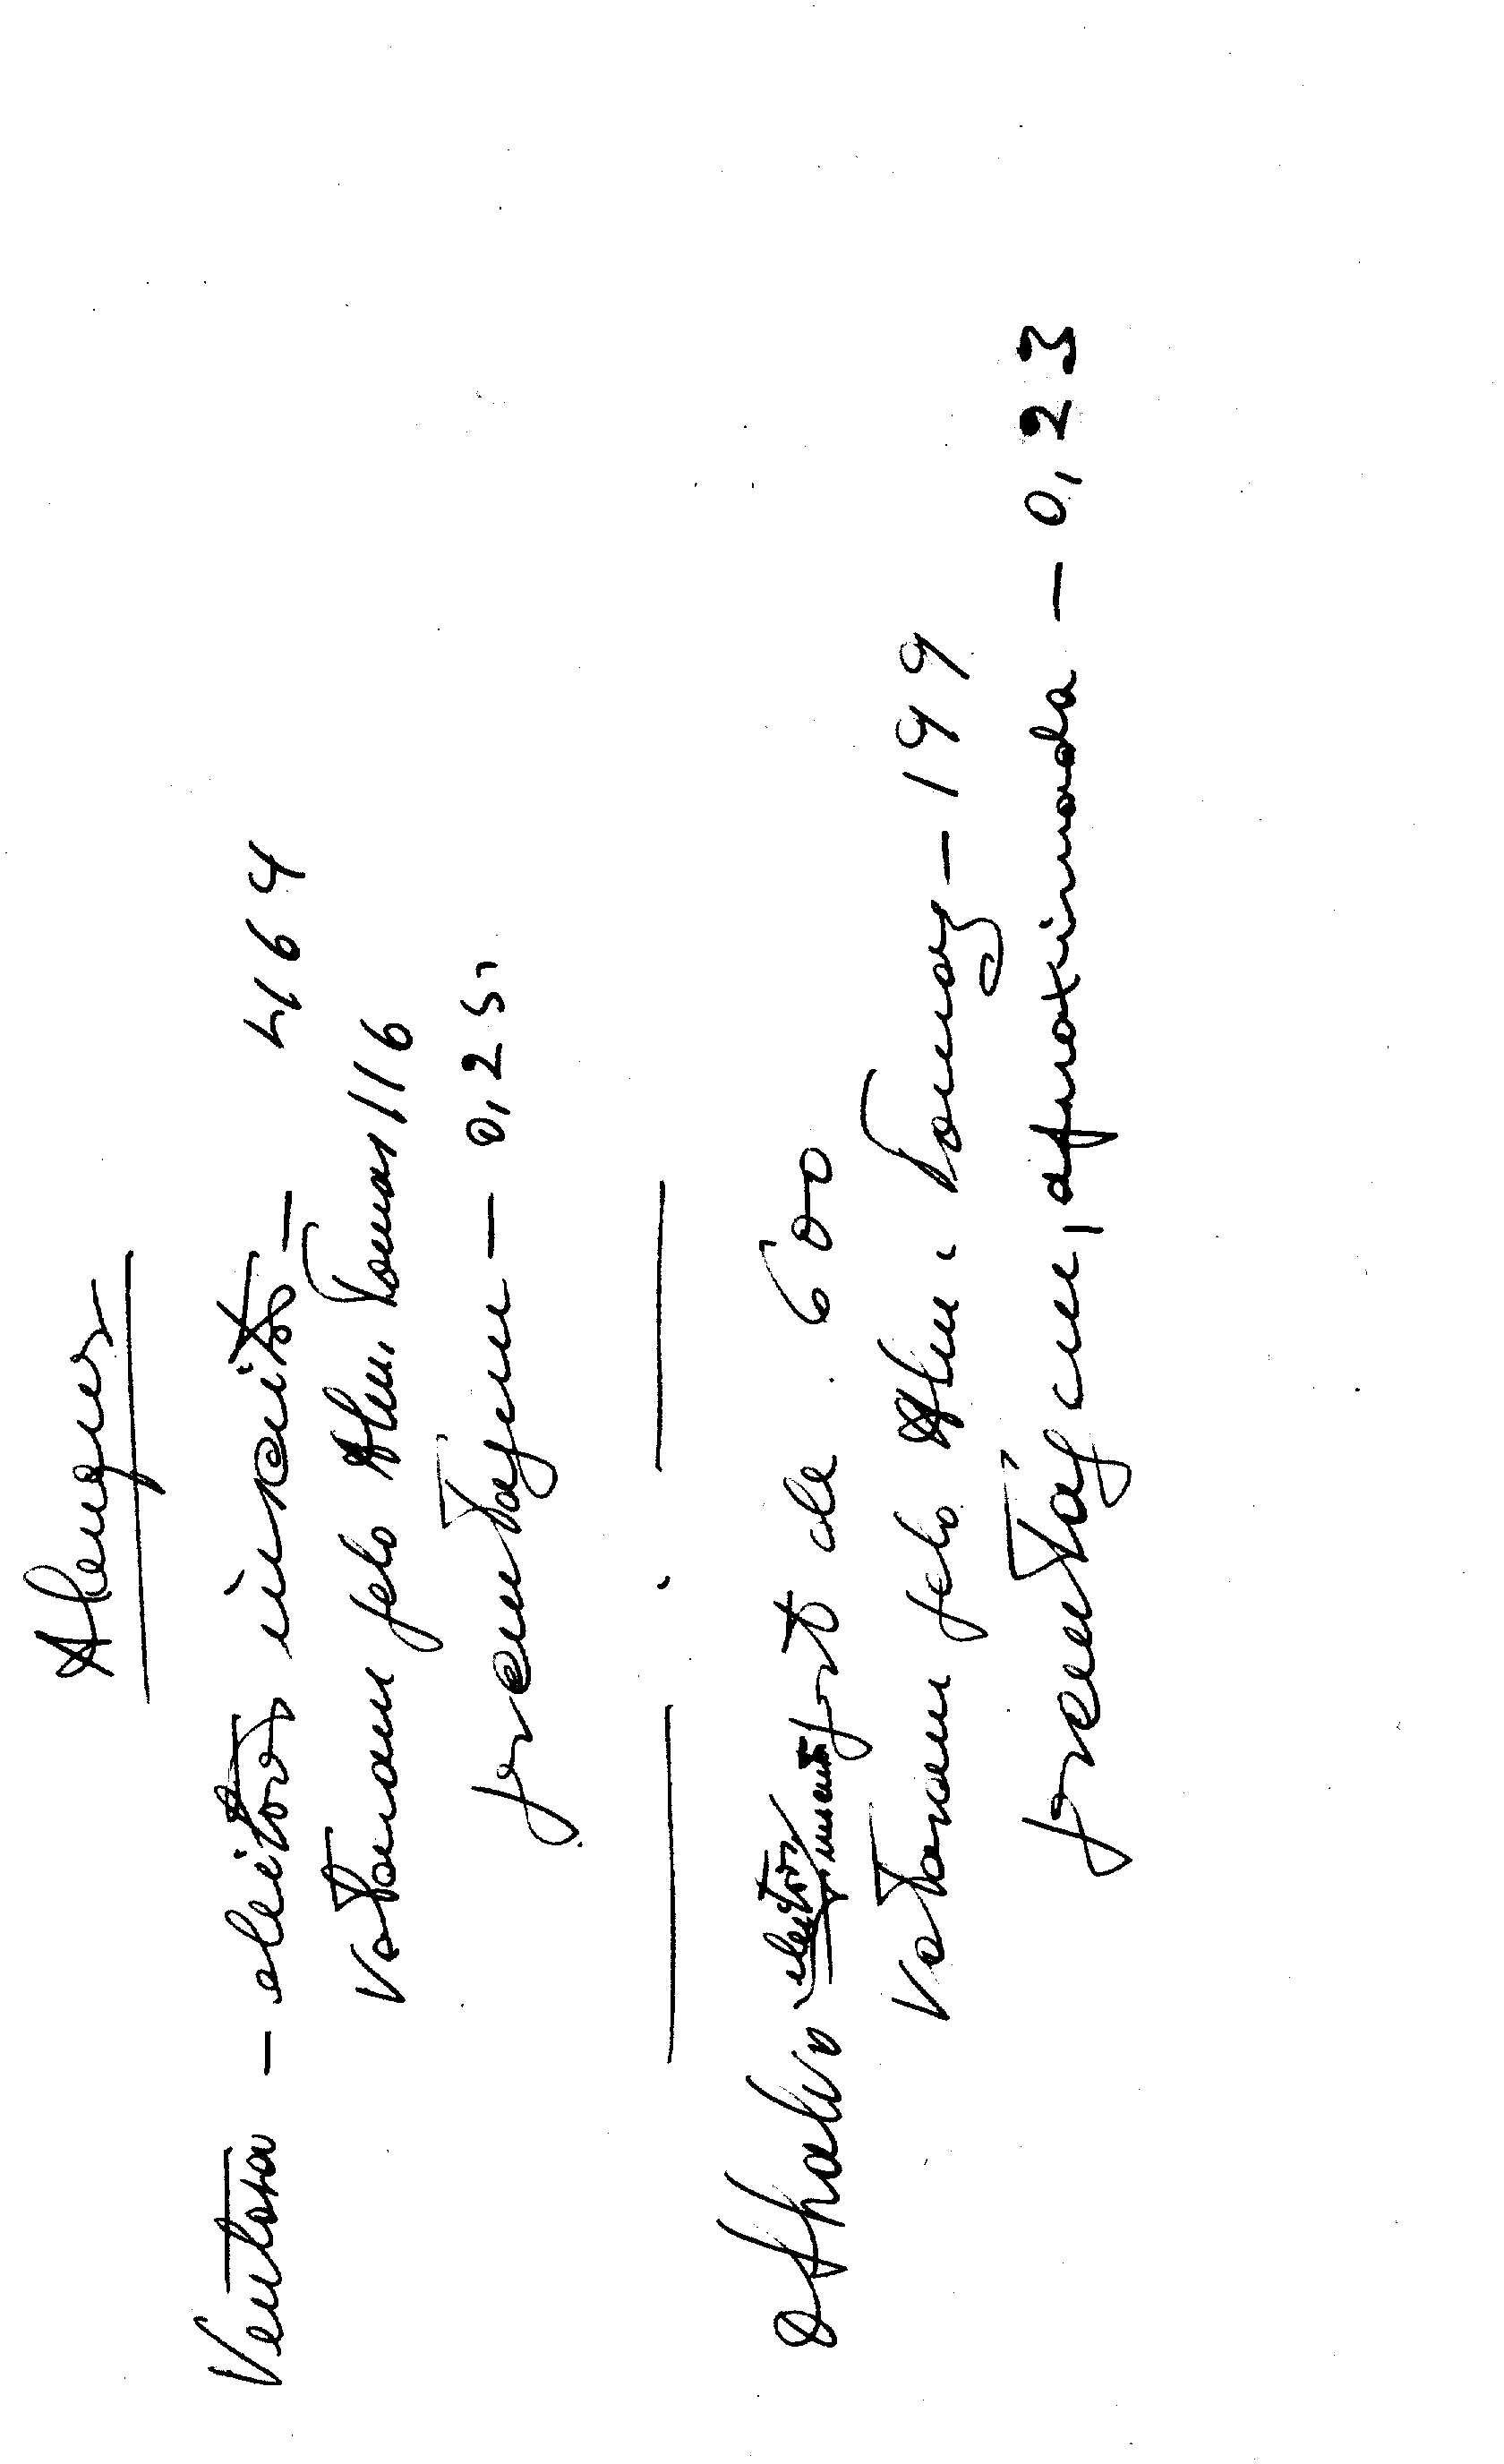 Alenquer
Ventosa - eleitores inscritos - 464
Votaram pelo Alm. Tomas 116
percentagem - 0,25
Olhalvo eleitores inscritos perto de 600
Votaram pelo Alm. Tomaz - 199
percentagem, aproximada - 0,23